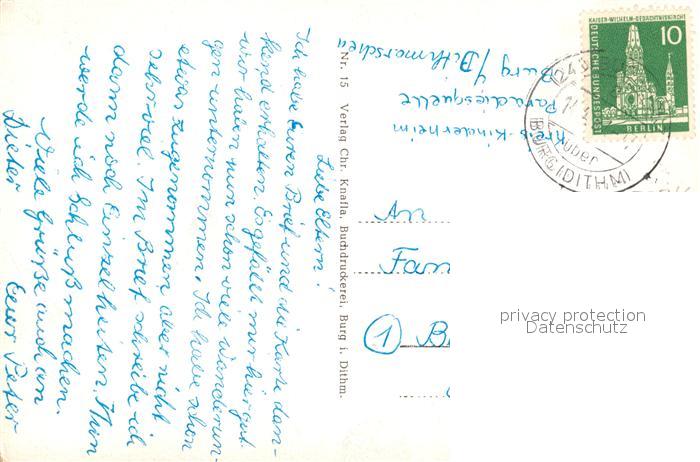 Liebe Eltern!
Ich habe Euren Brief und die Karte dan-
kend erhalten. Es gefällt mir hier gut.
Wir haben nun schon viele Wanderun-
gen unternommen. Ich habe schon
etwas zugenommen aber nicht
sehr viel. Im Brief schreibe ich
dann noch Einzelheiten. Nun
werde ich Schluß machen.
Viele Grüße auch an
Dieter Euer Peter
Nr. 15 Verlag Chr. Knafla, Buchdruckerei, Burg i. Dithm.
Kreis-Kinderheim
Paradiesquelle
Burg/Dithmarschen
KAISER-WILHELM-GEDÄCHTNISKIRCHE
10
DEUTSCHE BUNDESPOST
BERLIN
über
BURG (DITHM)
An
Fam
1 B
privacy protection
Datenschutz